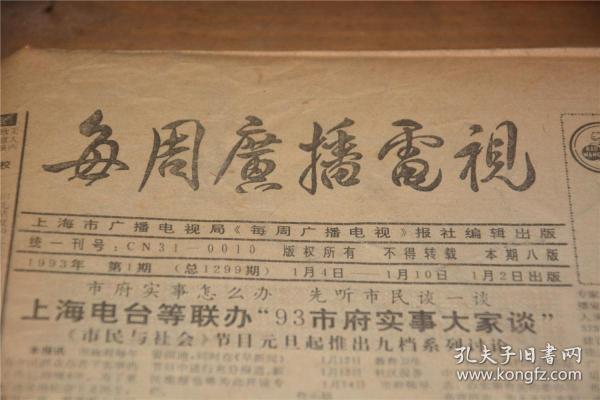 每周廣播電視
上海市广播电视局《每周广播电视》报社编辑出版
统一刊号：CN31—0010 版权所有 不得转载 本期八版
1993年 第1期（总1299期） 1月4日——1月10日 1月2日出版
市府实事怎么办 先听市民谈一谈
上海电台等联办“93市府实事大家谈”
《市民与社会》节目元旦起推出九档系列讨论
本报讯
孔夫子旧书网
www.kongfz.com